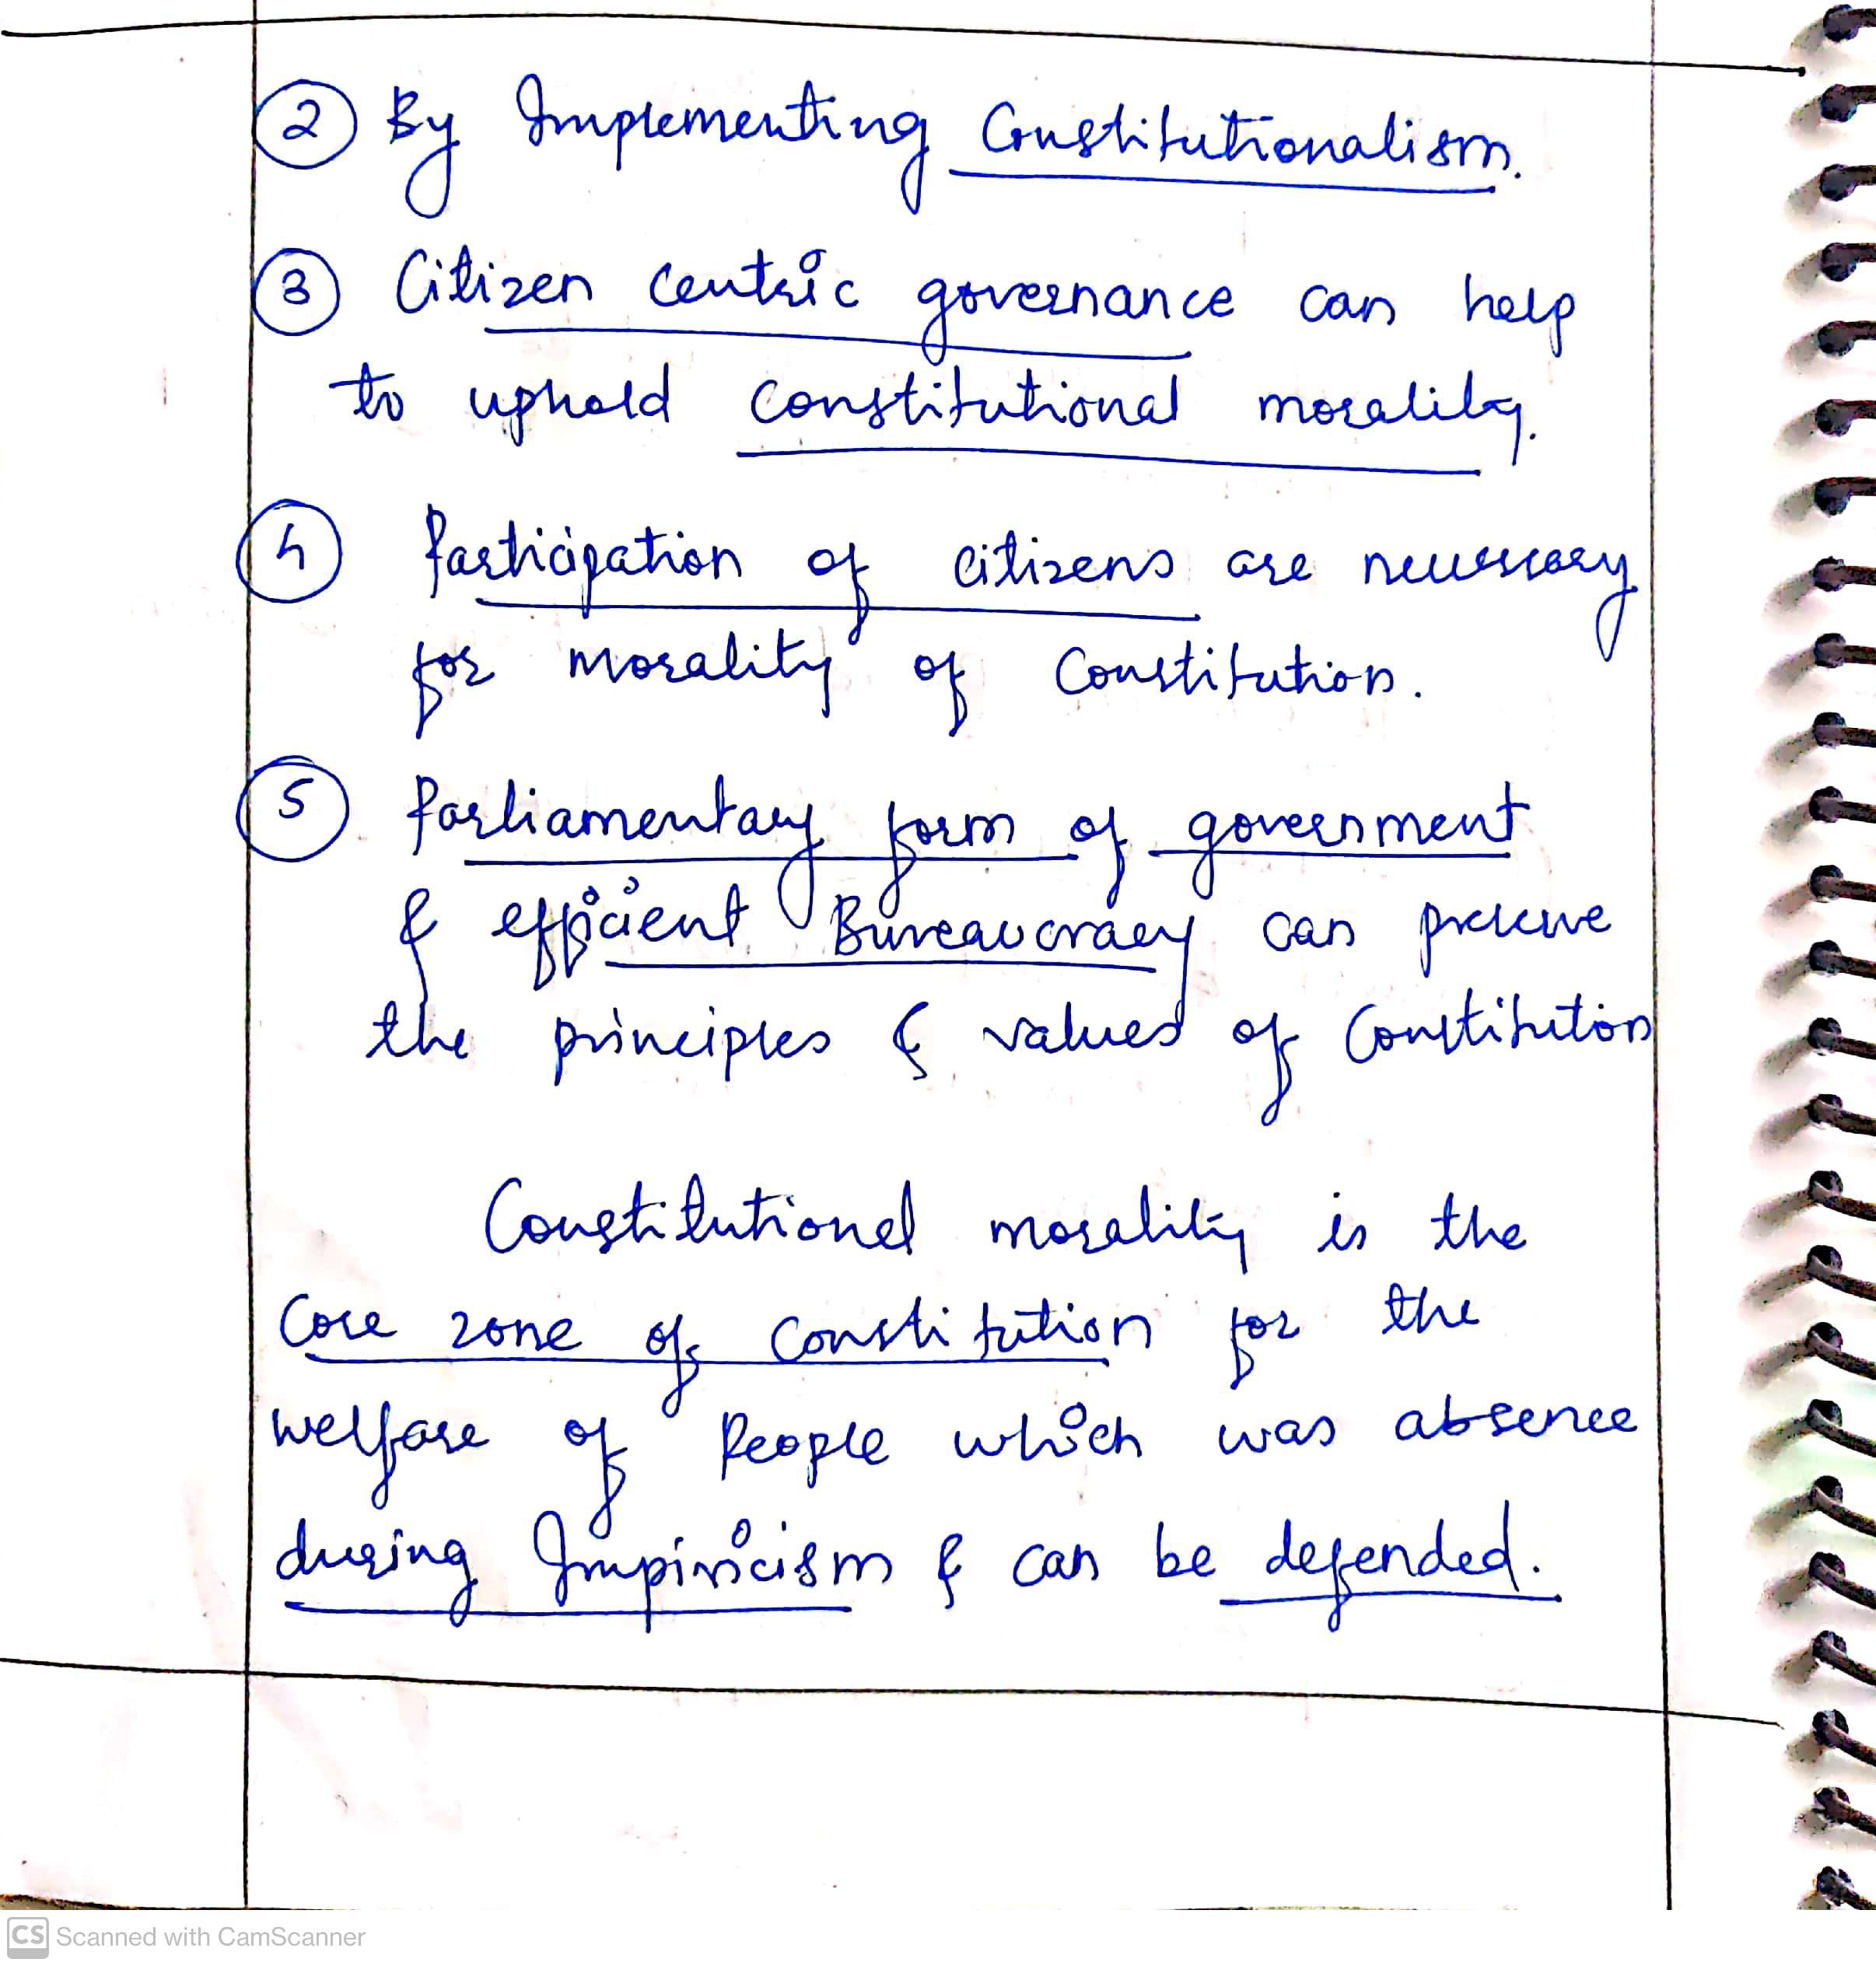 2 By Implementing Constitutionalism.
3 Citizen centric governance can help
to uphold constitutional morality.
4 Participation of citizens are necessary
for morality of Constitution.
5 Parliamentary form of government
& efficient Bureaucracy can preserve
the principles & values of Constitution
Constitutional morality is the
Core zone of constitution for the
welfare of People which was absence
during Impiricism & can be defended.
CS Scanned with CamScanner